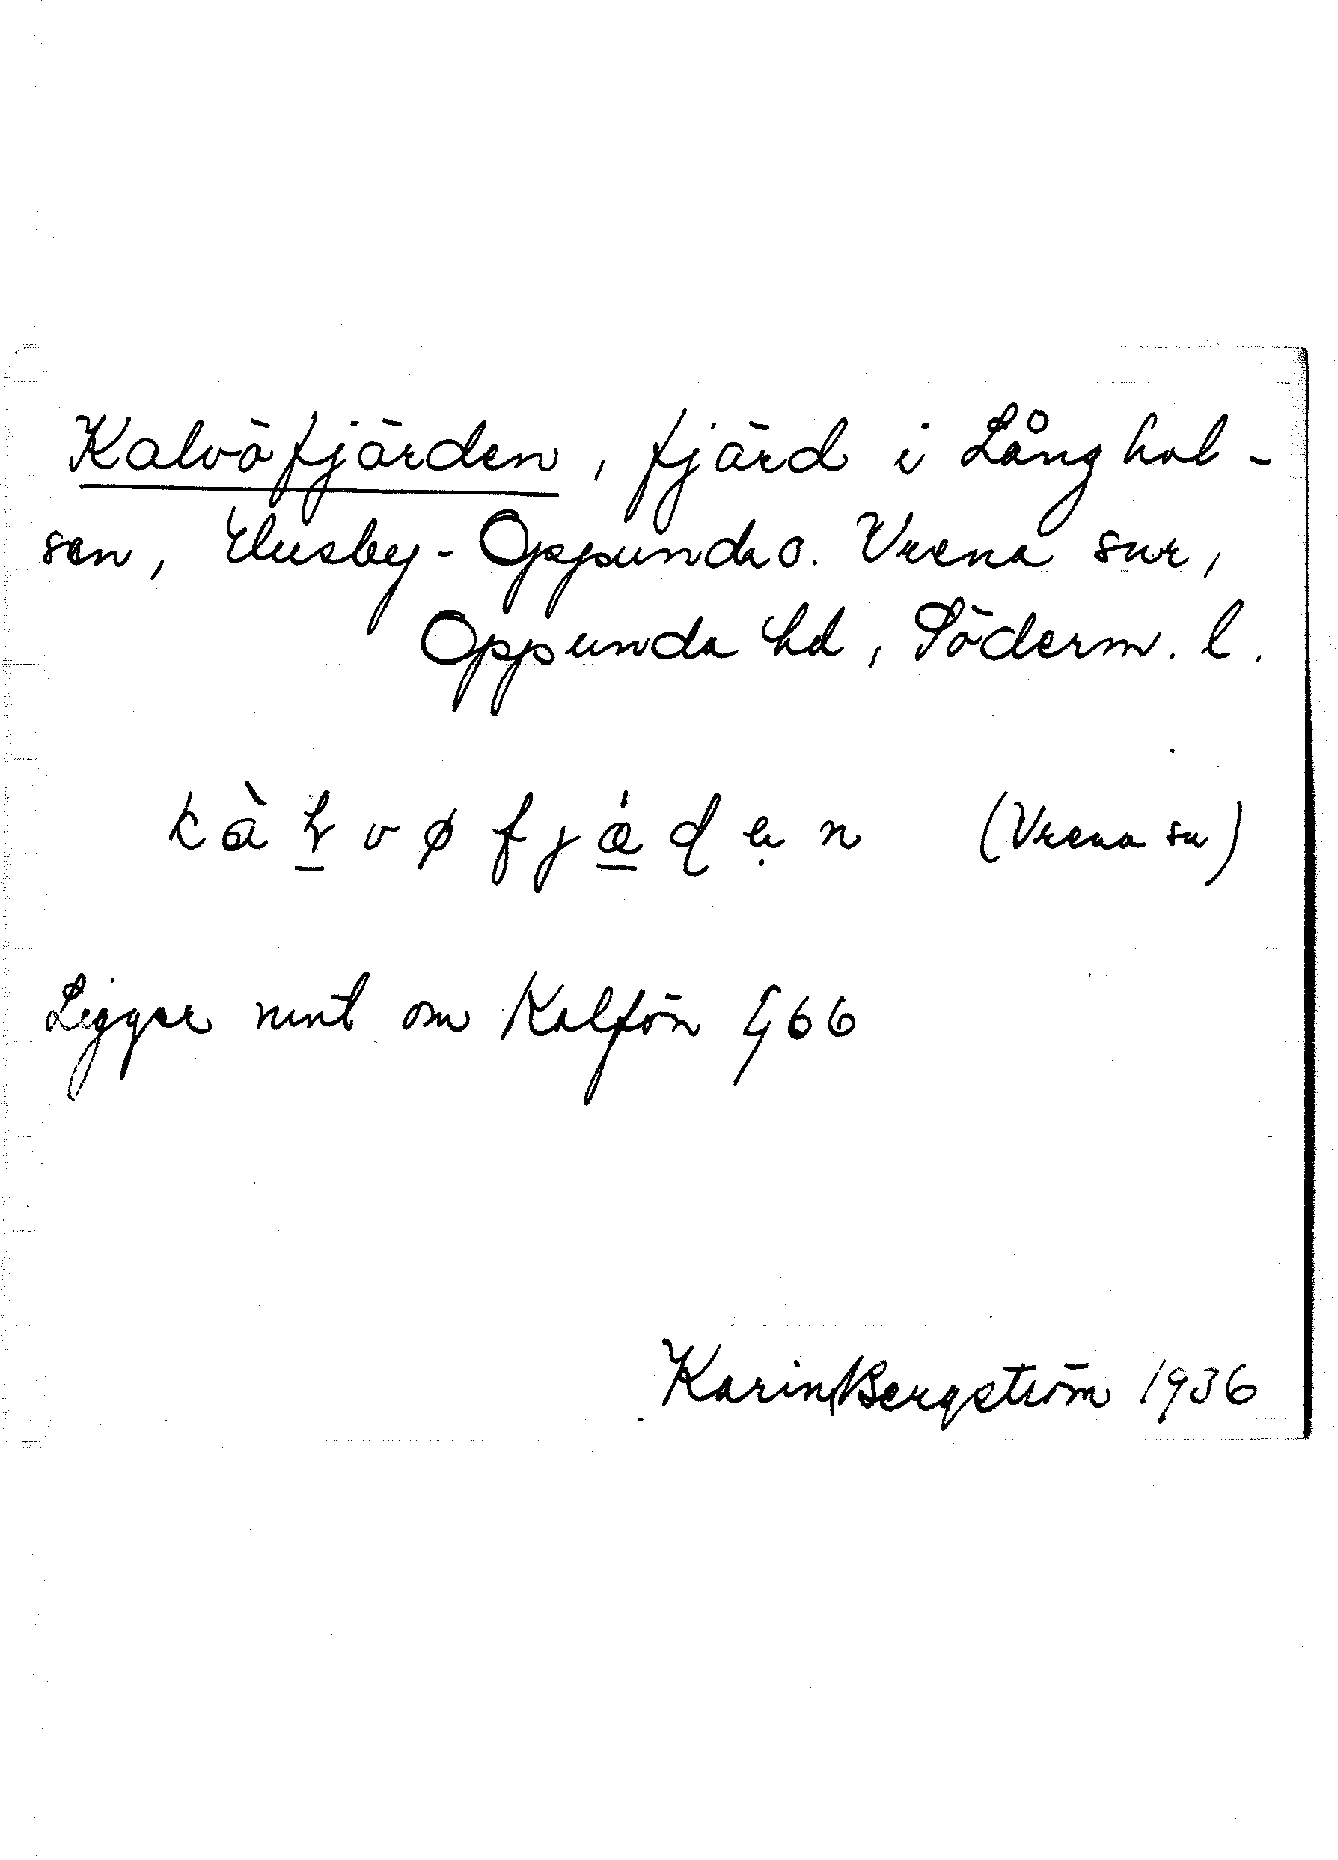 Kalvöfjärden, fjärd i Långhal-
sen, Husby-Oppunda o. Vrena snr,
Oppunda hd, Söderm. l.
(Vrena sn)
Ligger runt om Kalfön G66
Karin Bergström 1936